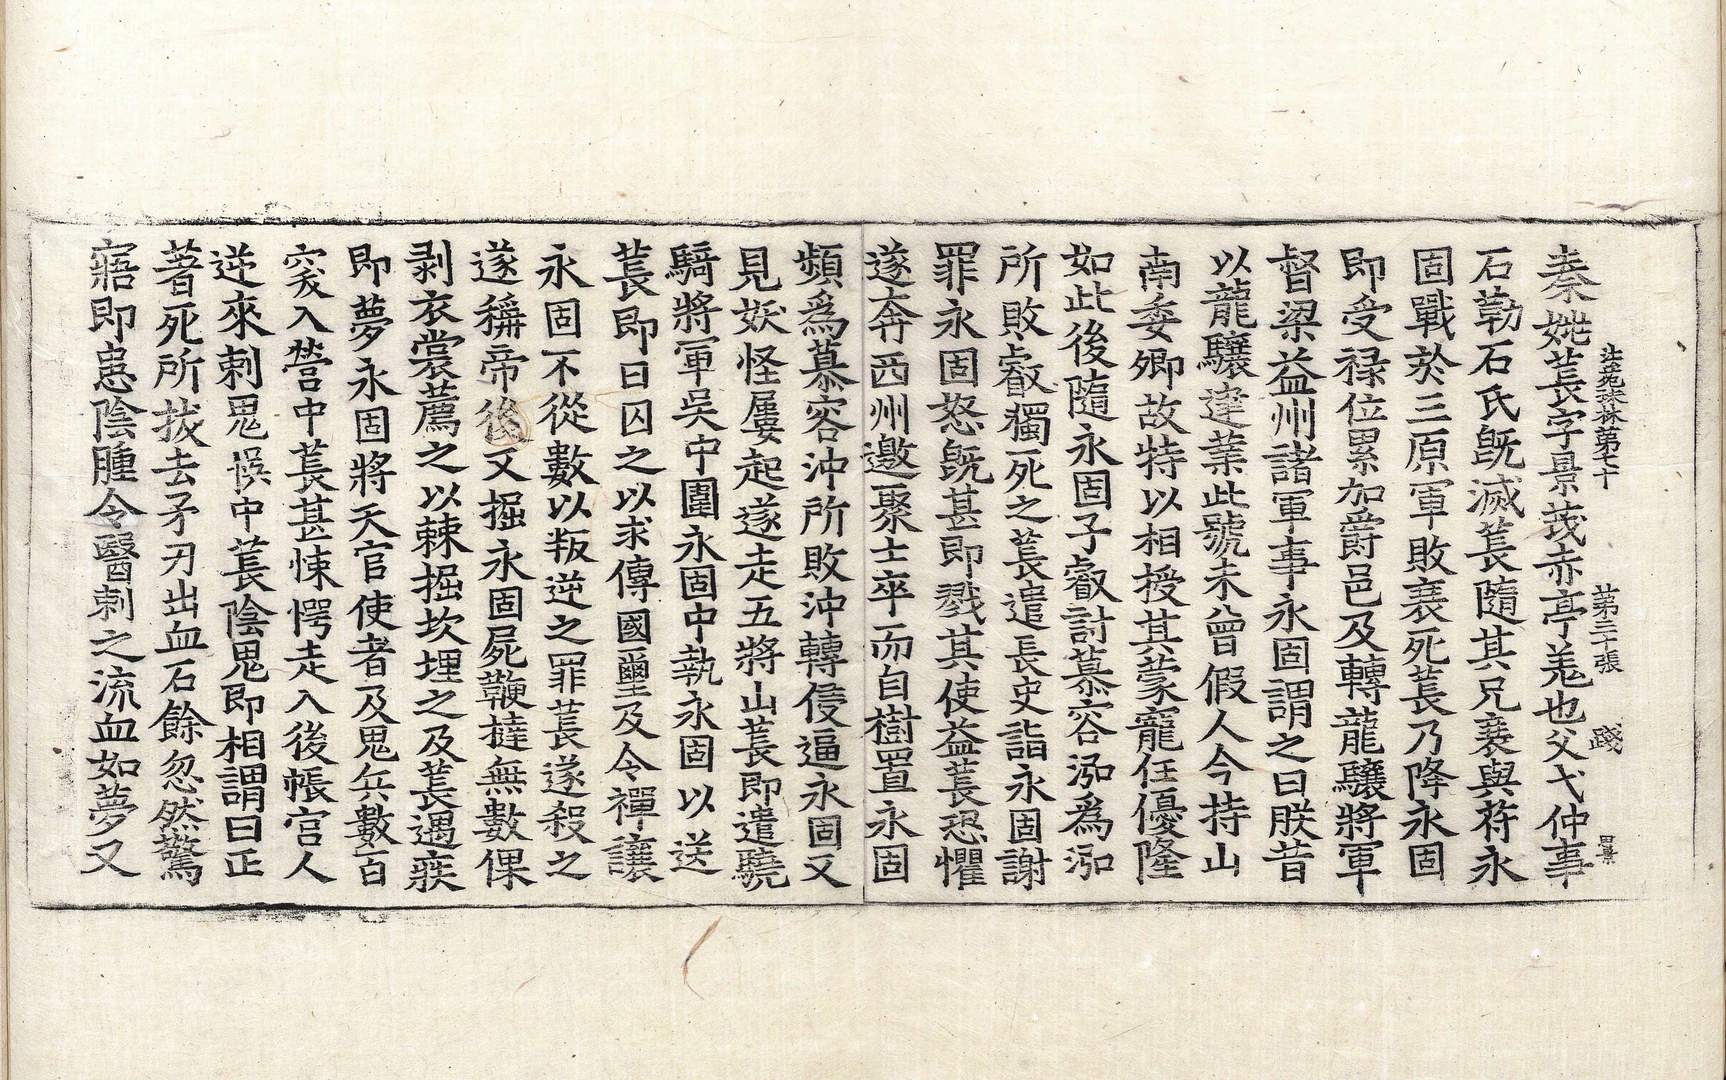 法苑珠林第七十　第三十張　踐　四景
秦姚萇字景茂赤亭羌也父弋仲事
石勒石氏旣滅萇隨其兄襄與苻永
固戰於三原軍敗襄死萇乃降永固
即受祿位累加爵邑及轉龍驤將軍
督梁益州諸軍事永固謂之曰朕昔
以龍驤建業此號未曾假人今持山
南委卿故特以相授其蒙寵任優隆
如此後隨永固子叡討慕容泓爲泓
所敗叡獨死之萇遣長史詣永固謝
罪永固怒旣甚即戮其使益萇恐懼
遂奔西州邀聚士卒而自樹置永固
頻爲慕容沖所敗沖轉侵逼永固又
見妖怪屢起遂走五將山萇即遣驍
騎將軍吳中圍永固中執永固以送
萇即日囚之以求傳國璽及令禪讓
永固不從數以叛逆之罪萇遂殺之
遂稱帝後又掘永固屍鞭撻無數倮
剥衣裳薦之以棘掘坎埋之及萇遇疾
即夢永固將天官使者及鬼兵數百
突入營中萇甚悚愕走入後帳宮人
逆來刺鬼悮中萇陰鬼即相謂曰正
著死所拔去矛刃出血石餘忽然驚
寤即患陰腫令醫刺之流血如夢又